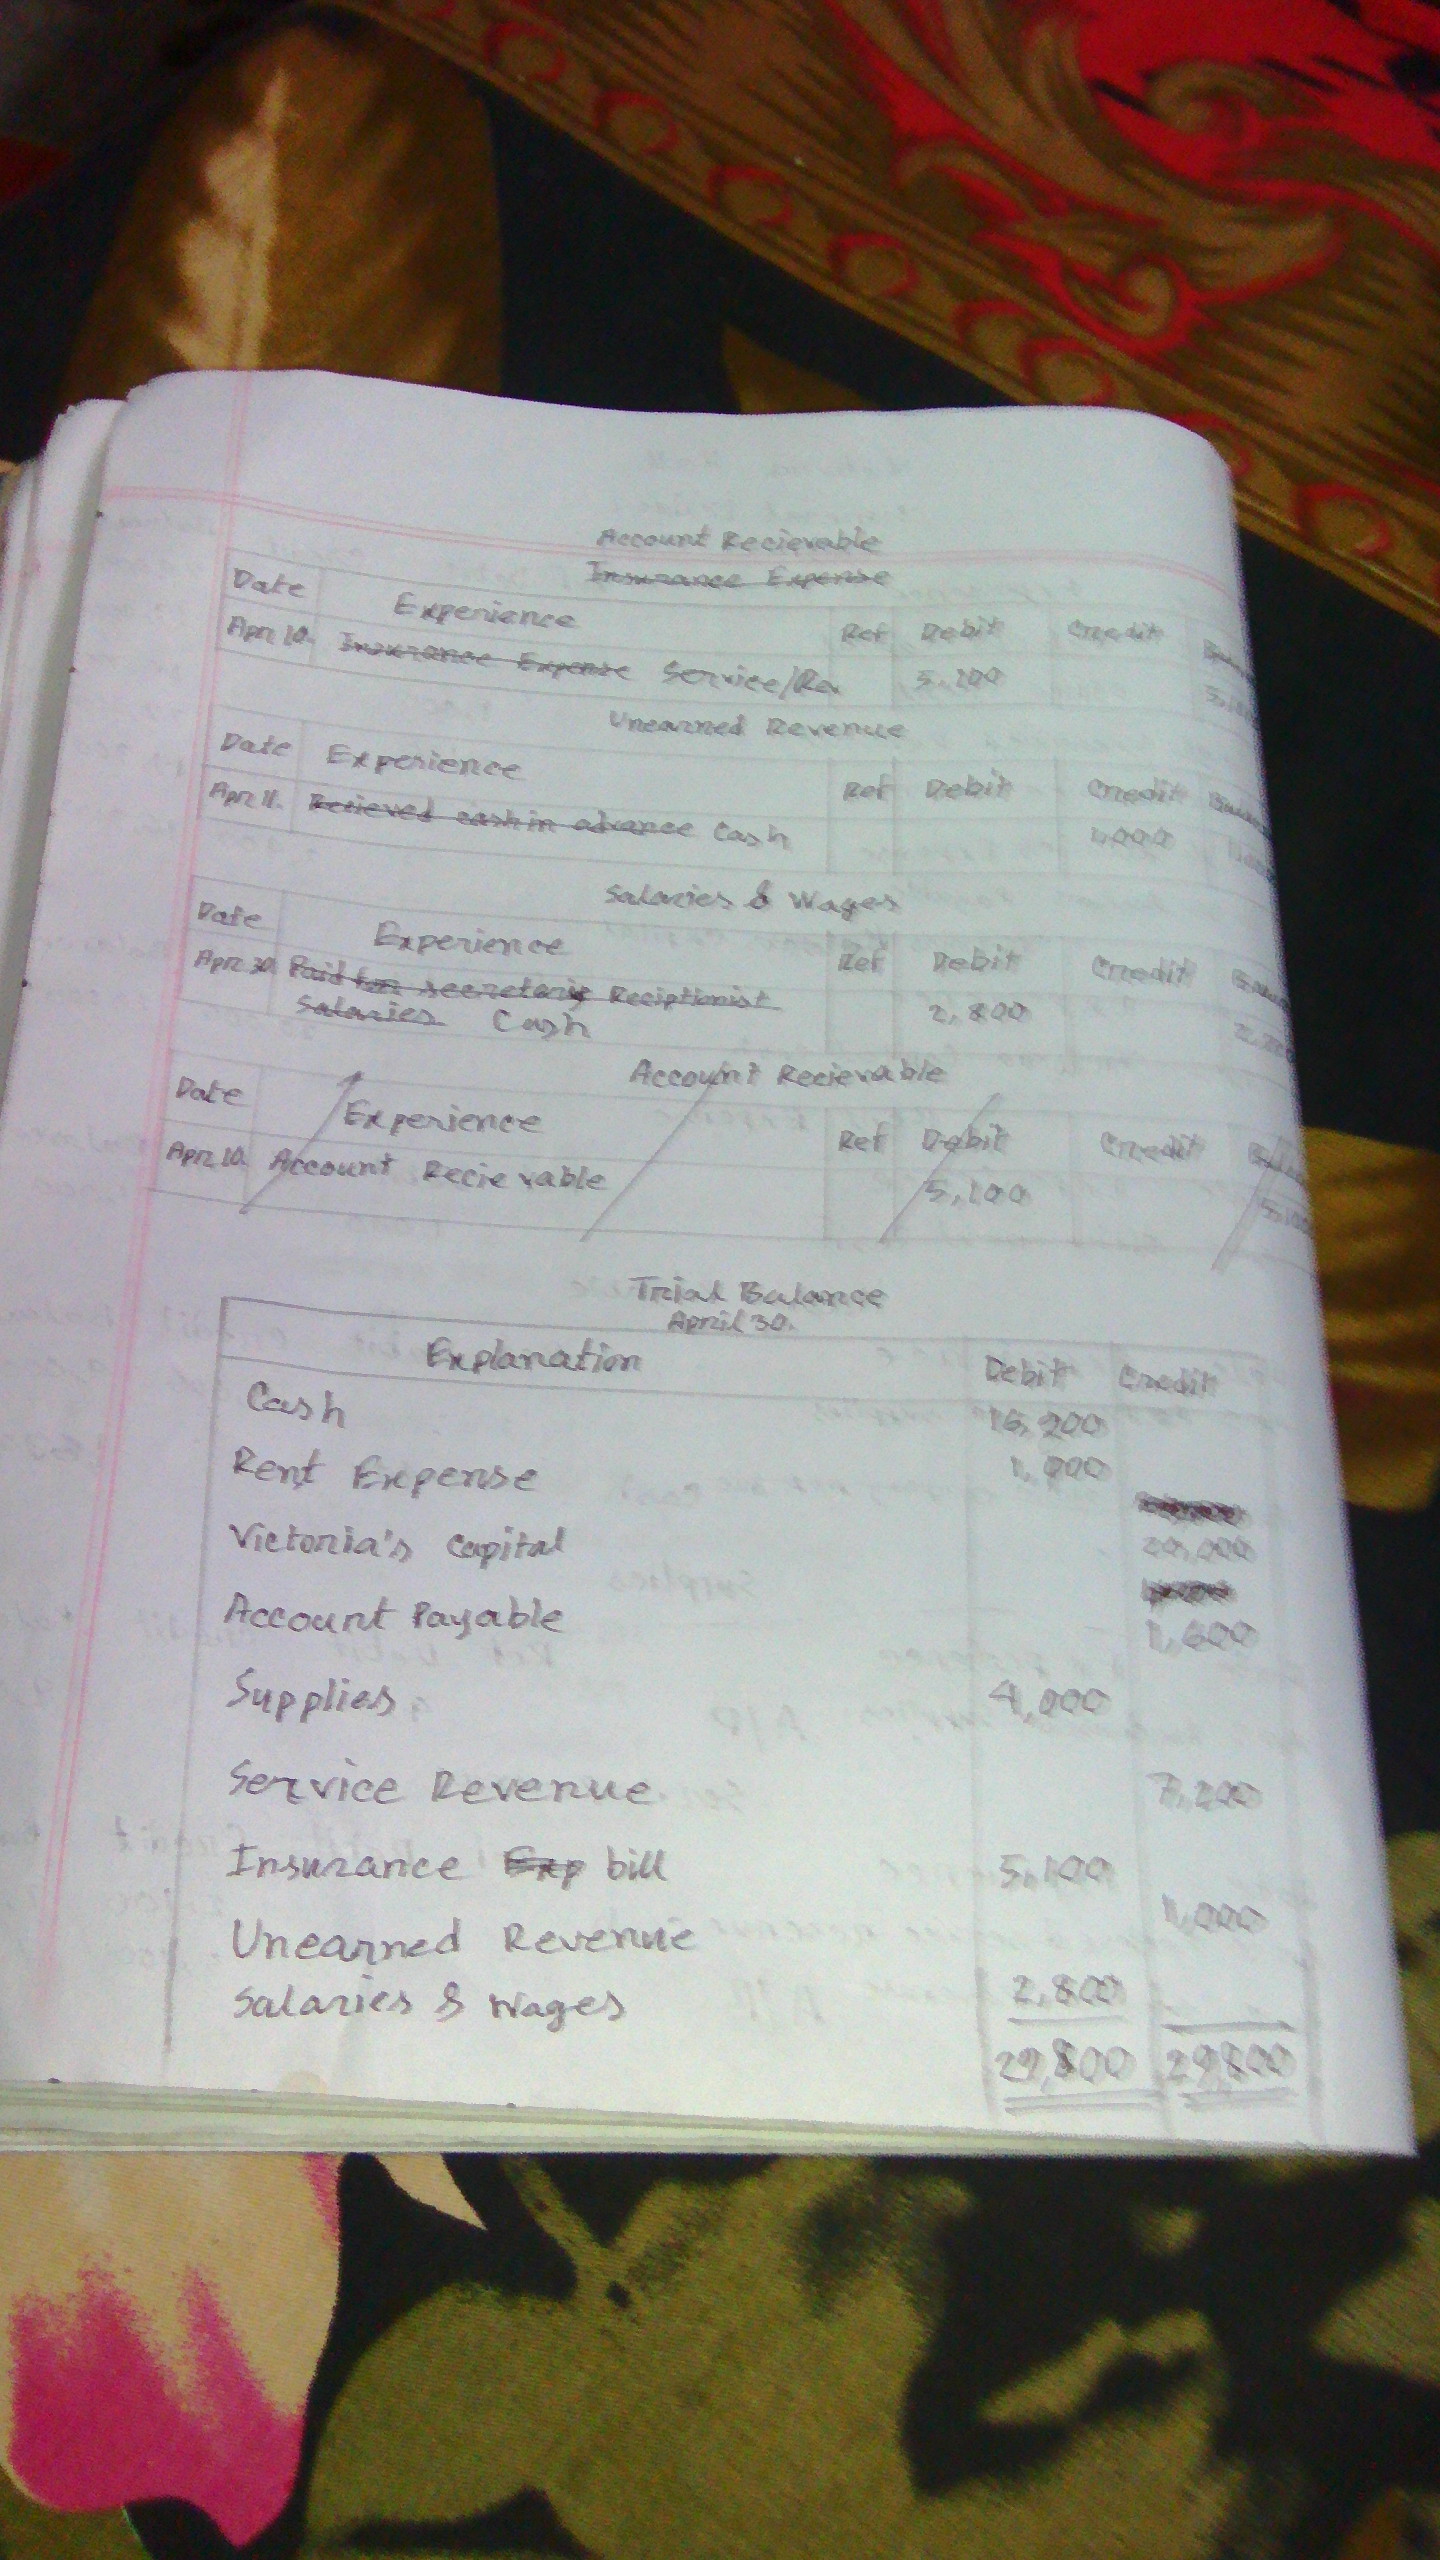 Account Recievable
Insurance Expense
Date Experience Ref Debit Credit
Apr 10. Insurance Expense Service/Rev 5,100
Unearned Revenue
Date Experience Ref Debit Credit
Apr 11. Recieved cash in advance Cash 1,000
Salaries & Wages
Date Experience Ref Debit Credit
Apr 30. Paid for secretary Reciptionist 2,800
Salaries Cash
Account Recievable
Date Experience Ref Debit Credit
Apr 10. Account Recievable 5,100
Trial Balance
April 30.
Explanation Debit Credit
Cash 16,900
Rent Expense 1,000
Victoria's Capital 20,000
Account Payable 1,600
Supplies 4,000
Service Revenue 7,200
Insurance Exp bill 5,100
Unearned Revenue 1,000
Salaries & Wages 2,800
29,800 29800